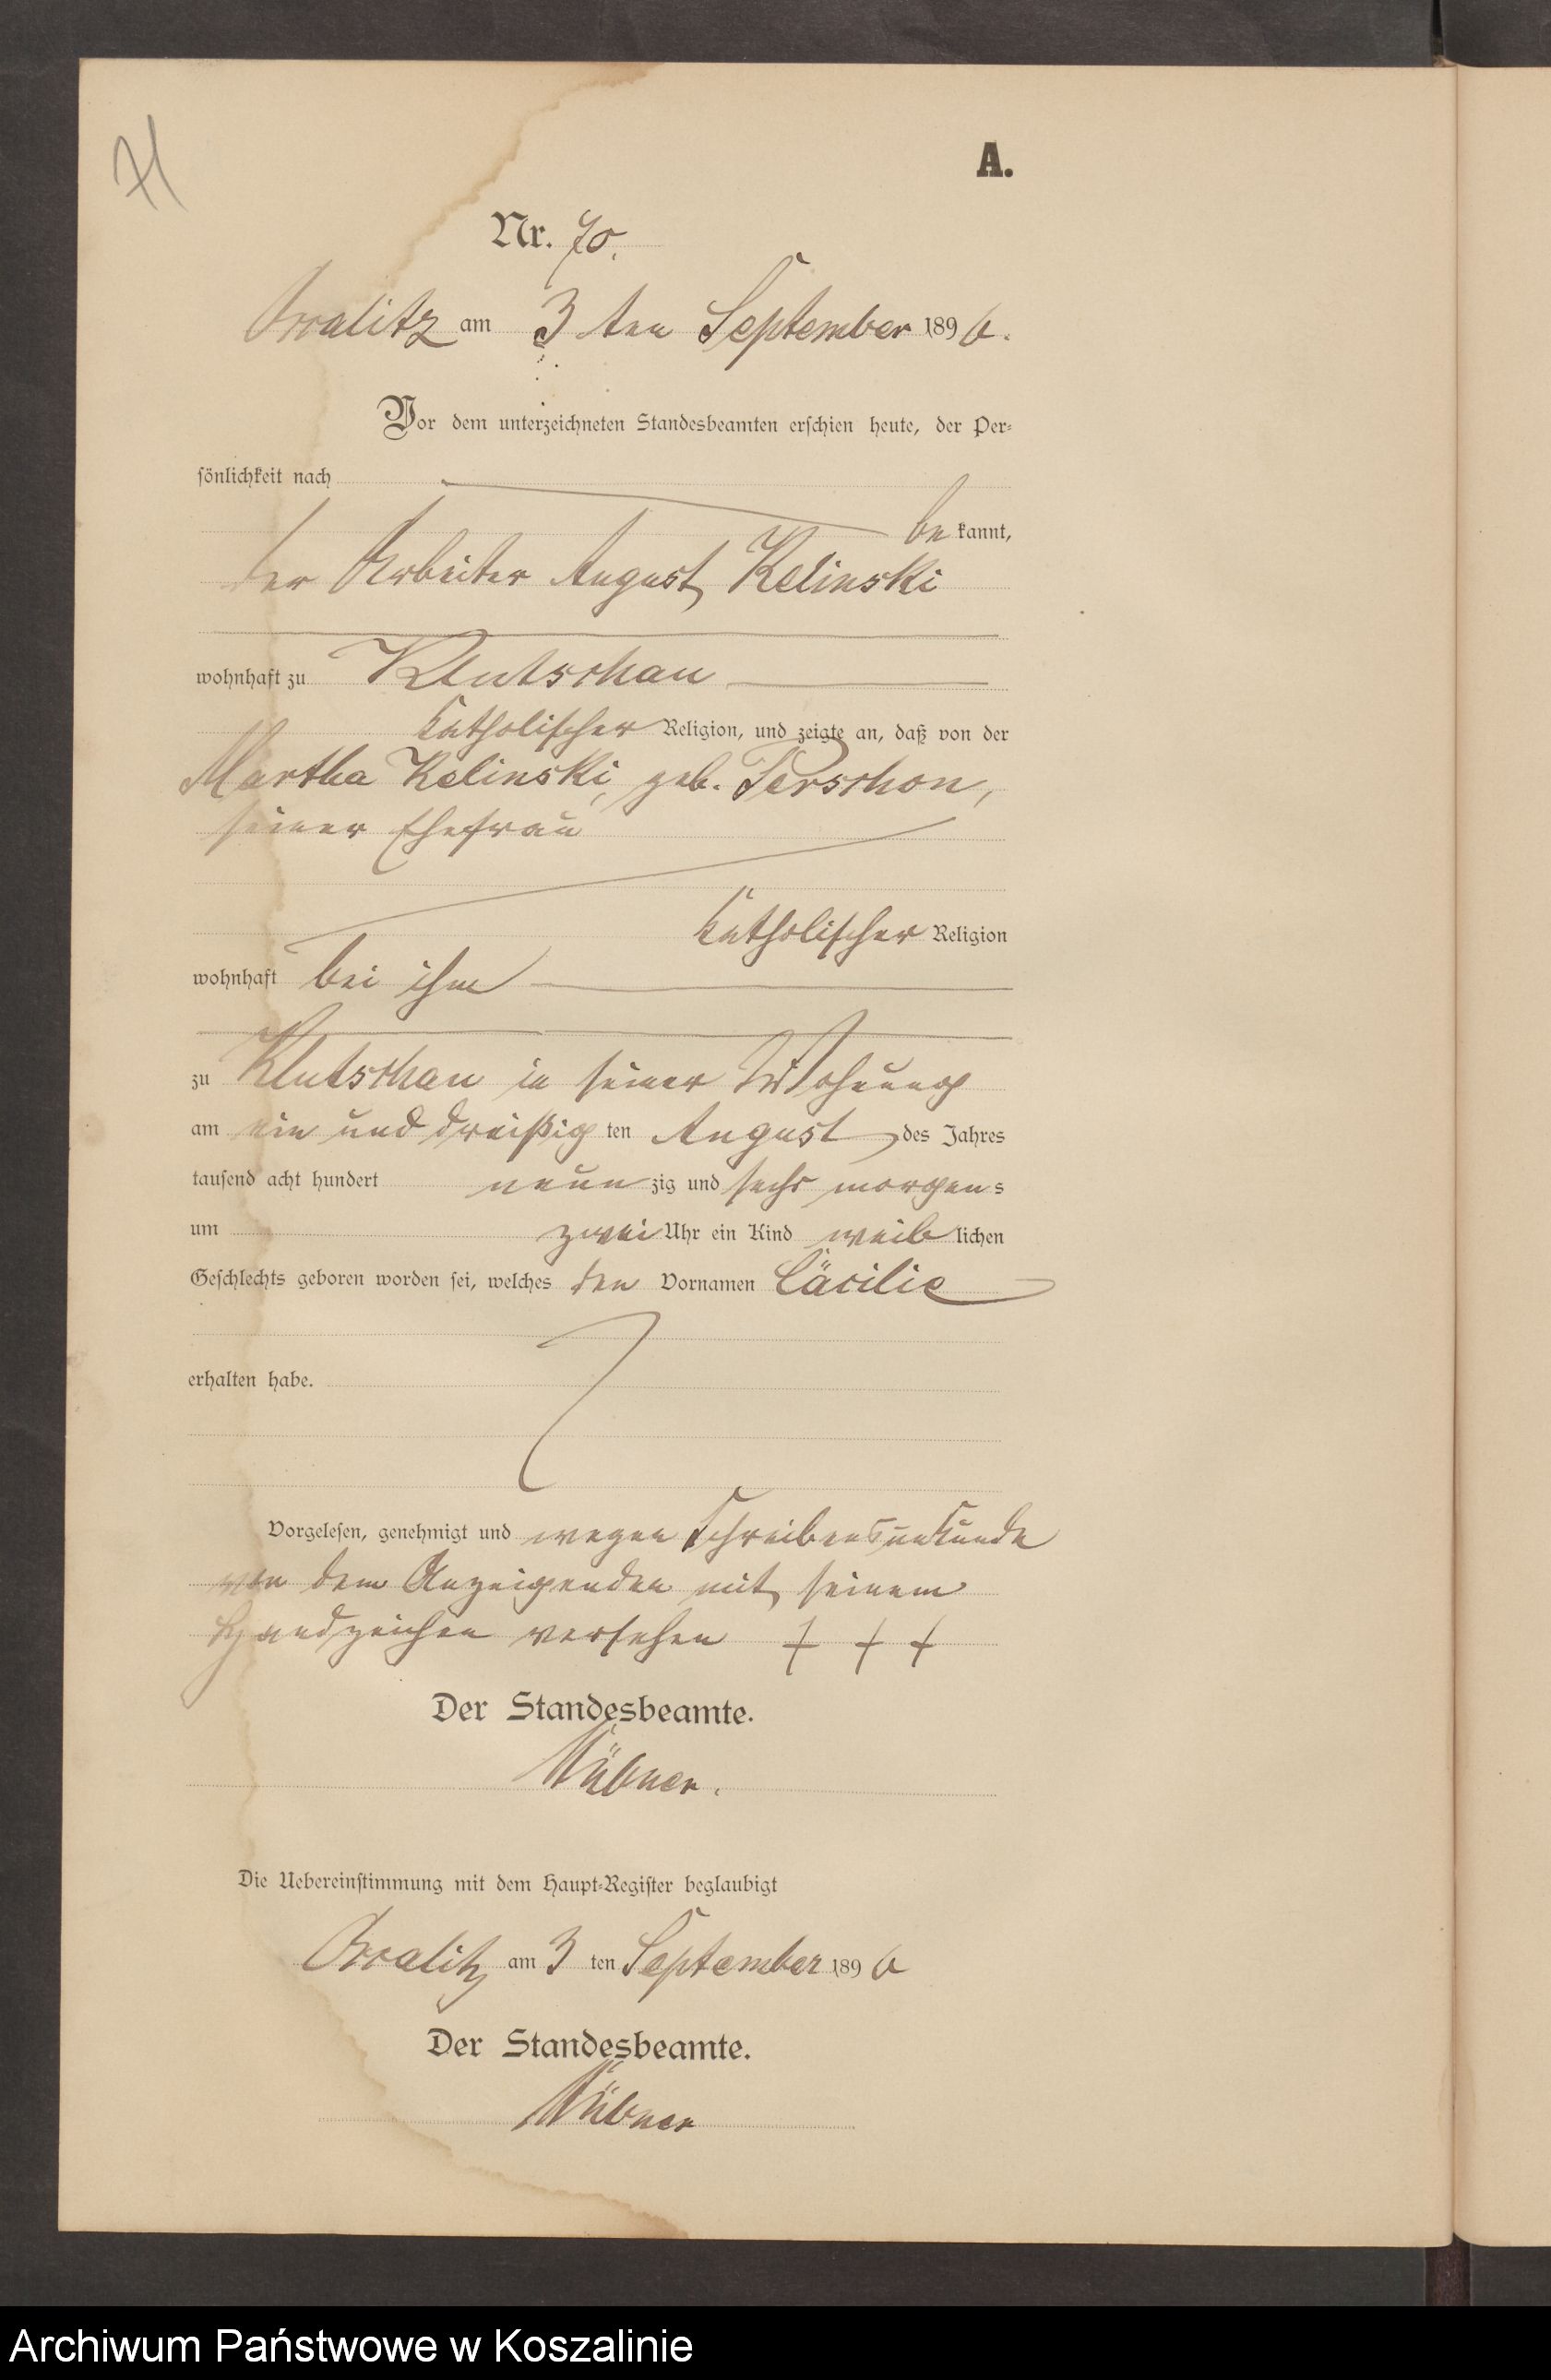 71
A.
Nr. 70.
Occalitz am 3 ten September 1896.
Vor dem unterzeichneten Standesbeamten erschien heute, der Per-
sönlichkeit nach
be kannt,
der Arbeiter August Kelinski
wohnhaft zu Klutschau
katholischer Religion, und zeigte an, daß von der
Martha Kelinski, geb. Perschon,
seiner Ehefrau
katholischer Religion
wohnhaft bei ihm
zu Klutschau in seiner Wohnung
am ein und dreißig ten August des Jahres
tausend acht hundert neun zig und sechs morgens
um zwei Uhr ein Kind weib lichen
Geschlechts geboren worden sei, welches den Vornamen Cäcilie
erhalten habe.
Vorgelesen, genehmigt und wegen Schreibensunkunde
von dem Anzeigenden mit seinem
Handzeichen versehen + + +
Der Standesbeamte.
Die Uebereinstimmung mit dem Haupt-Register beglaubigt
Occalitz am 3 ten September 1896
Der Standesbeamte.
Archiwum Państwowe w Koszalinie